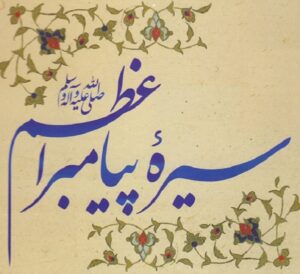 سیرهٔ پیامبر اعظم
صلی‌الله‌علیه‌وآله‌وسلم